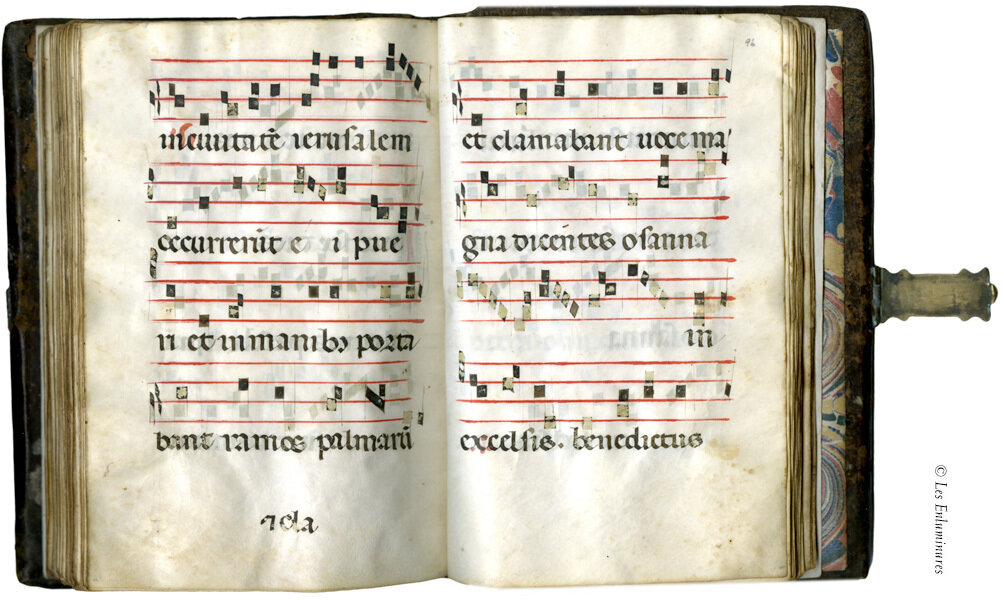 in civitatē ierusalem
occurrerūt e i pue
ri et in manibꝰ porta
bant ramos palmarū
⁊ cla
96
et clamabant uoce ma
gna dicentes osanna
in
excelsis. benedictus
© Les Enluminures